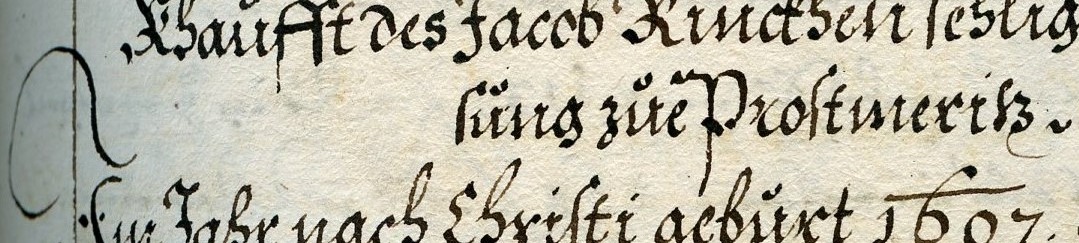 Khaufft des Jacob Rinckhen sehlig
sung zue Prostmeritz.
Im Jahr nach Christi geburt 1607.